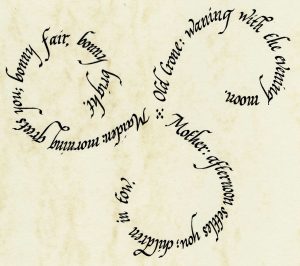 Maiden: morning greets you; bonny fair, bonny bright;
Mother: afternoon settles you; children in tow;
Old Crone: waning with the evening moon.